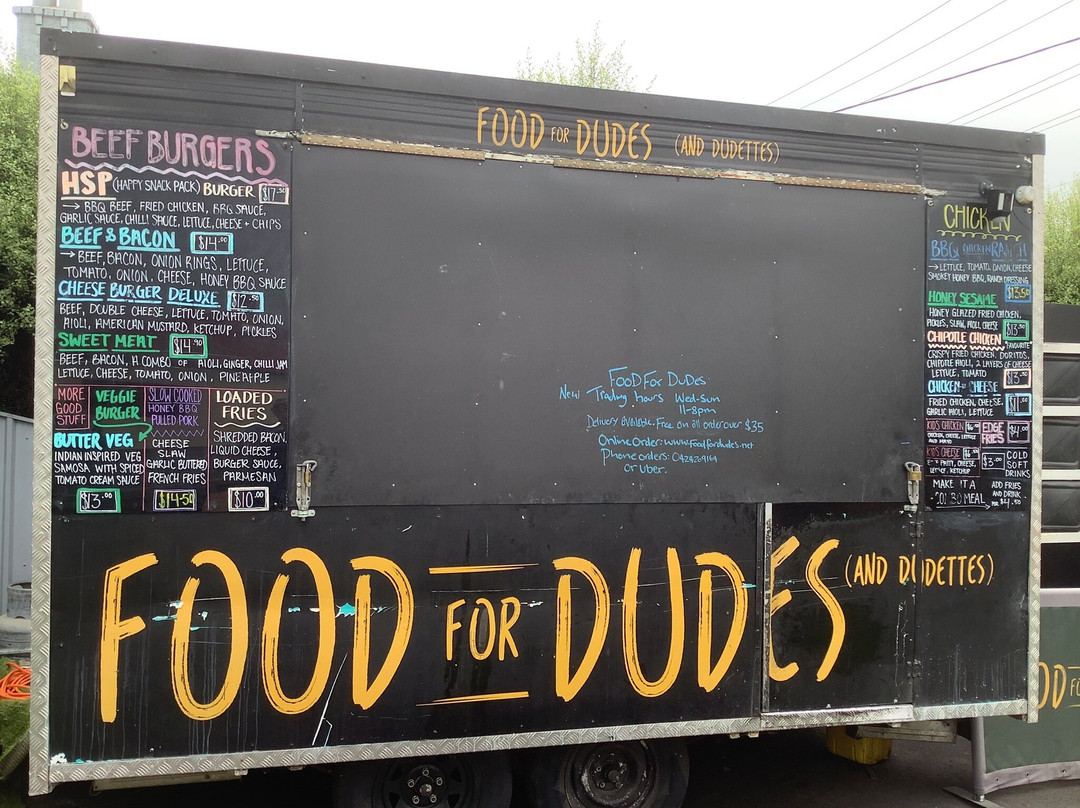 FOOD FOR DUDES (AND DUDETTES)
BEEF BURGERS
HSP (HAPPY SNACK PACK) BURGER $17.50
→ BBQ BEEF, FRIED CHICKEN, BBQ SAUCE,
GARLIC SAUCE, CHILLI SAUCE, LETTUCE, CHEESE + CHIPS
BEEF & BACON $14.00
→ BEEF, BACON, ONION RINGS, LETTUCE,
TOMATO, ONION, CHEESE, HONEY BBQ SAUCE
CHEESE BURGER DELUXE $12.50
BEEF, DOUBLE CHEESE, LETTUCE, TOMATO, ONION,
AIOLI, AMERICAN MUSTARD, KETCHUP, PICKLES
SWEET MEAT $14.90
BEEF, BACON, A COMBO OF AIOLI, GINGER, CHILLI JAM
LETTUCE, CHEESE, TOMATO, ONION, PINEAPPLE
MORE
GOOD
STUFF
VEGGIE
BURGER
BUTTER VEG
INDIAN INSPIRED VEG
SAMOSA WITH SPICED
TOMATO CREAM SAUCE
$13.00
SLOW COOKED
HONEY BBQ
PULLED PORK
CHEESE
SLAW
GARLIC BUTTERED
FRENCH FRIES
$14.50
LOADED
FRIES
SHREDDED BACON,
LIQUID CHEESE,
BURGER SAUCE,
PARMESAN
$10.00
FOOD FOR DUDES
New Trading hours Wed-Sun
11-8pm
Delivery available. Free on all order over $35
Online Order: www.foodfordudes.net
Phone orders:
or Uber.
CHICKEN
BBQ CHICKEN RANCH
→ LETTUCE, TOMATO, ONION, CHEESE
SMOKEY HONEY BBQ, RANCH DRESSING
$13.50
HONEY SESAME
HONEY GLAZED FRIED CHICKEN,
PICKLES, SLAW, AIOLI, CHEESE $13.50
CHIPOTLE CHICKEN FAVOURITE
CRISPY FRIED CHICKEN, DORITOS,
CHIPOTLE AIOLI, 2 LAYERS OF CHEESE
LETTUCE, TOMATO
CHICKEN & CHEESE
FRIED CHICKEN, CHEESE,
GARLIC AIOLI, LETTUCE
KIDS CHICKEN
CHICKEN, CHEESE, LETTUCE
AND MAYO
EDGE
FRIES
KIDS CHEESE
PATTY, CHEESE,
LETTUCE, KETCHUP
COLD
SOFT
DRINKS
MAKE IT A
MEAL
ADD FRIES
AND DRINK
FOR
FOOD FOR DUDES (AND DUDETTES)